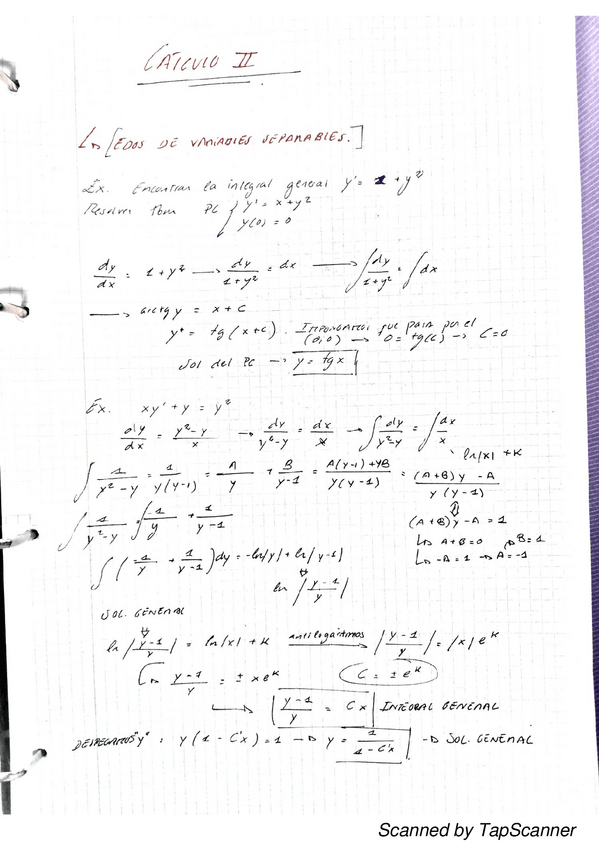 CÁLCULO II
↳ [EDOS DE VARIABLES SEPARABLES.]
Ex. Encontrar la integral general y' = 1 + y²
Resolver PC { y' = x + y²
y(0) = 0
dy/dx = 1 + y² → dy/(1+y²) = dx → ∫ dy/(1+y²) = ∫ dx
→ arctg y = x + C
y = tg(x+c). Imponemos que pasa por el
(0,0) → 0 = tg(C) → C=0
Sol del PC → y = tg x
Ex. xy' + y = y²
dy/dx = (y²-y)/x → dy/(y²-y) = dx/x → ∫ dy/(y²-y) = ∫ dx/x
ln|x| + K
∫ 1/(y²-y) = 1/(y(y-1)) = A/y + B/(y-1) = (A(y-1)+yB)/(y(y-1)) = ((A+B)y - A)/(y(y-1))
∫ 1/(y²-y) = ∫ -1/y + 1/(y-1)
(A+B)y - A = 1
↳ A+B=0 → B=1
↳ -A=1 → A=-1
∫ (-1/y + 1/(y-1)) dy = -ln|y| + ln|y-1|
ln |(y-1)/y|
SOL. GENERAL
ln |(y-1)/y| = ln|x| + K antilogaritmos → |(y-1)/y| = |x| e^K
↳ (y-1)/y = ± x e^K C = ± e^K
↳ (y-1)/y = Cx INTEGRAL GENERAL
DESPEJAMOS "y" : y(1 - Cx) = 1 → y = 1/(1-Cx) → SOL. GENERAL
Scanned by TapScanner